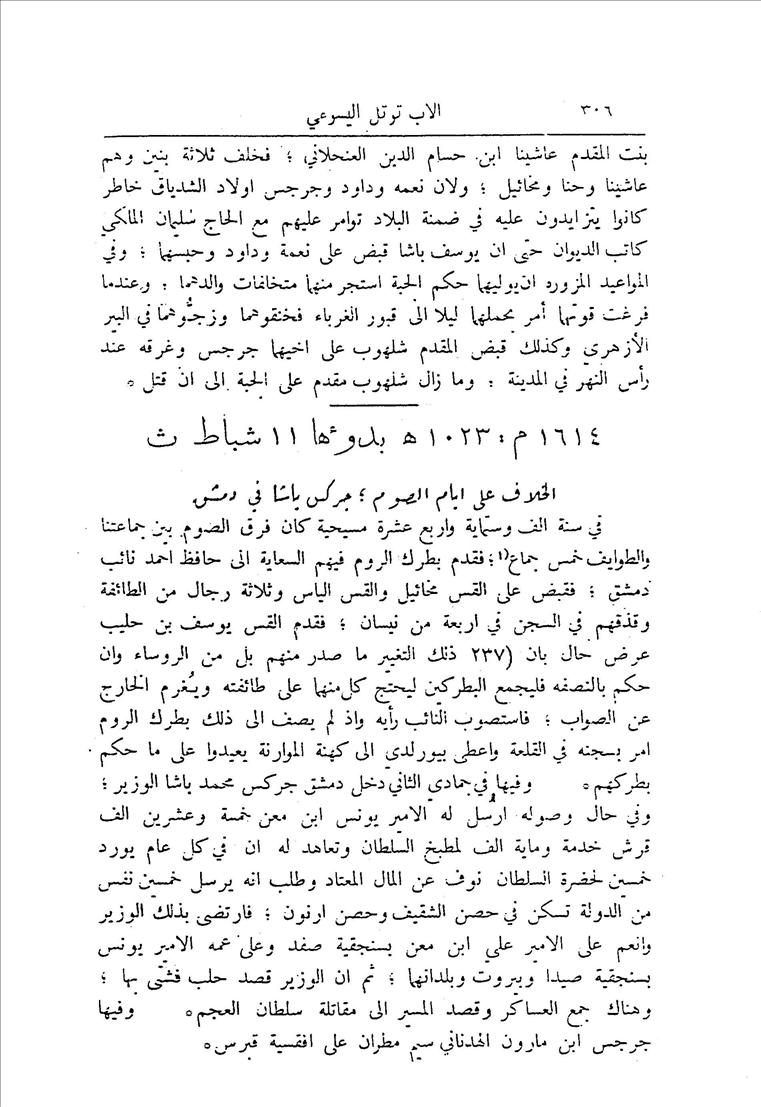 ٣٠٦ الاب توتل اليسوعي
بنت المقدم عاشينا ابن حسام الدين العنحلاني ؛ فخلف ثلاثة بنين وهم
عاشينا وحنا ومخائيل ؛ ولان نعمه وداود وجرجس اولاد الشدياق خاطر
كانوا يتزايدون عليه في ضمنة البلاد توامر عليهم مع الحاج سُليمان المالكي
كاتب الديوان حتى ان يوسف باشا قبض على نعمة وداود وحبسهما ؛ وفي
المواعيد المزوره ان يوليهما حكم الجبة استجر منهما متخلفات والدهما ؛ وعندما
فرغت قوتهما أمر بحملهما ليلا الى قبور الغرباء فخنقوهما وزجُّوهما في البير
الأزهري وكذلك قبض المقدم شلهوب على اخيهما جرجس وغرقه عند
رأس النهر في المدينة ؛ وما زال شلهوب مقدم على الجبة الى ان قتل ٥
١٦١٤ م : ١٠٢٣ ه بدوءها ١١ شباط ث
الخلاف على ايام الصوم ؛ جركس باشا في دمشق
في سنة الف وستماية واربع عشرة مسيحية كان فرق الصوم بين جماعتنا
والطوايف خمس جماع(١ ؛ فقدم بطرك الروم فيهم السعاية الى حافظ احمد نائب
دمشق ؛ فقبض على القس مخائيل والقس الياس وثلاثة رجال من الطائفة
وقذقهم في السجن في اربعة من نيسان ؛ فقدم القس يوسف بن حليب
عرض حال بان (٢٣٧ ذلك التغيير ما صدر منهم بل من الروساء وان
حكم بالنصفه فليجمع البطركين ليحتج كل منهما على طائفته ويُغرم الخارج
عن الصواب ؛ فاستصوب النائب رأيه واذ لم يصف الى ذلك بطرك الروم
امر بسجنه في القلعة واعطى بيورلدي الى كهنة الموارنة يعيدوا على ما حكم
بطركهم ٥ وفيها في جمادي الثاني دخل دمشق جركس محمد باشا الوزير ؛
وفي حال وصوله ارسل له الامير يونس ابن معن خمسة وعشرين الف
قرش خدمة وماية الف لمطبخ السلطان وتعاهد له ان في كل عام يورد
خمسين لحضرة السلطان نوف عن المال المعتاد وطلب انه يرسل خمسين نفس
من الدولة تسكن في حصن الشقيف وحصن ارنون ؛ فارتضى بذلك الوزير
وانعم على الامير علي ابن معن بسنجقية صفد وعلى عمه الامير يونس
بسنجقية صيدا وبيروت وبلدانها ؛ ثم ان الوزير قصد حلب فشتّى بها ؛
وهناك جمع العساكر وقصد المسير الى مقاتلة سلطان العجم ٥ وفيها
جرجس ابن مارون الهدناني سيم مطران على افقسية قبرس ٥